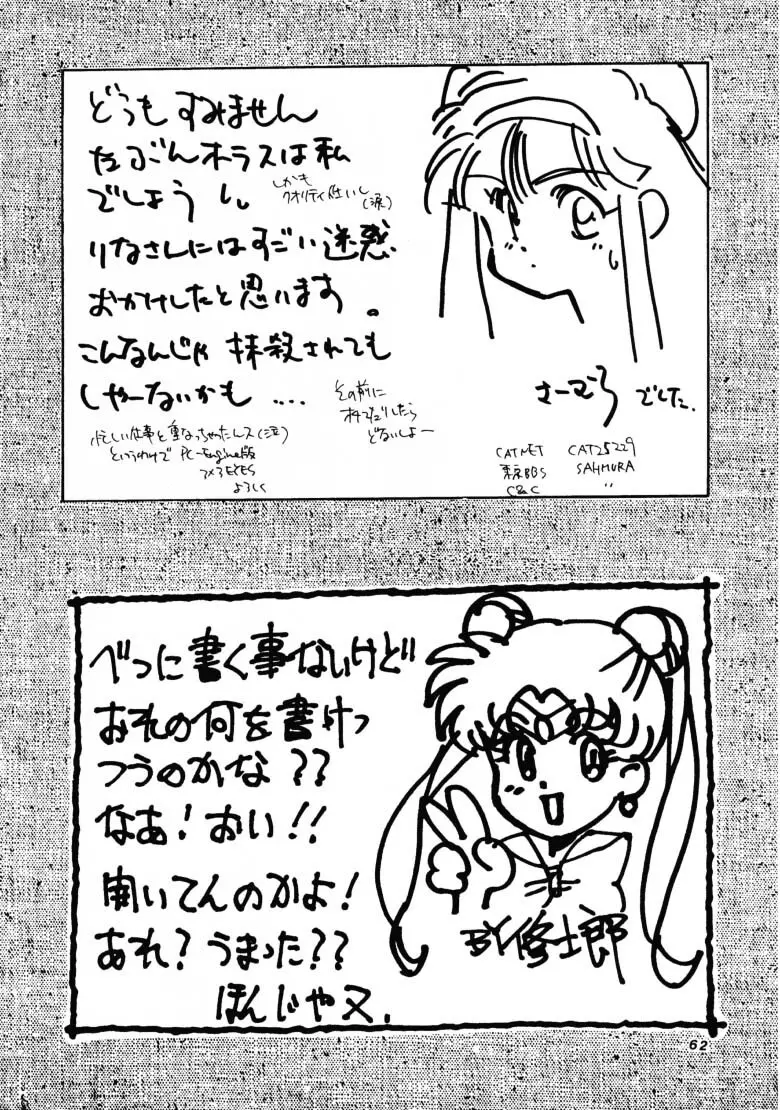 どうもすみません
たぶんホーラスは私
でしょう
しかも
クオリティ低いし
(涙)
りなさんにはすごい迷惑
おかけしたと思います。
こんなんじゃ抹殺されても
しゃーないかも ....
その前に
したら
どないしよー
忙しい仕事と重なっちゃったんス(泣)
というわけで PC-Engine版
3×3EYES
よろしく
さーむら でした.
CATNET CAT25229
東京BBS SAHMURA
C&C 〃
べつに書く事ないけど
おれの何を書けっ
つうのかな??
なあ!おい!!
聞いてんのかよ!
あれ?うまった??
ほんじゃ又.
BY修士郎
62